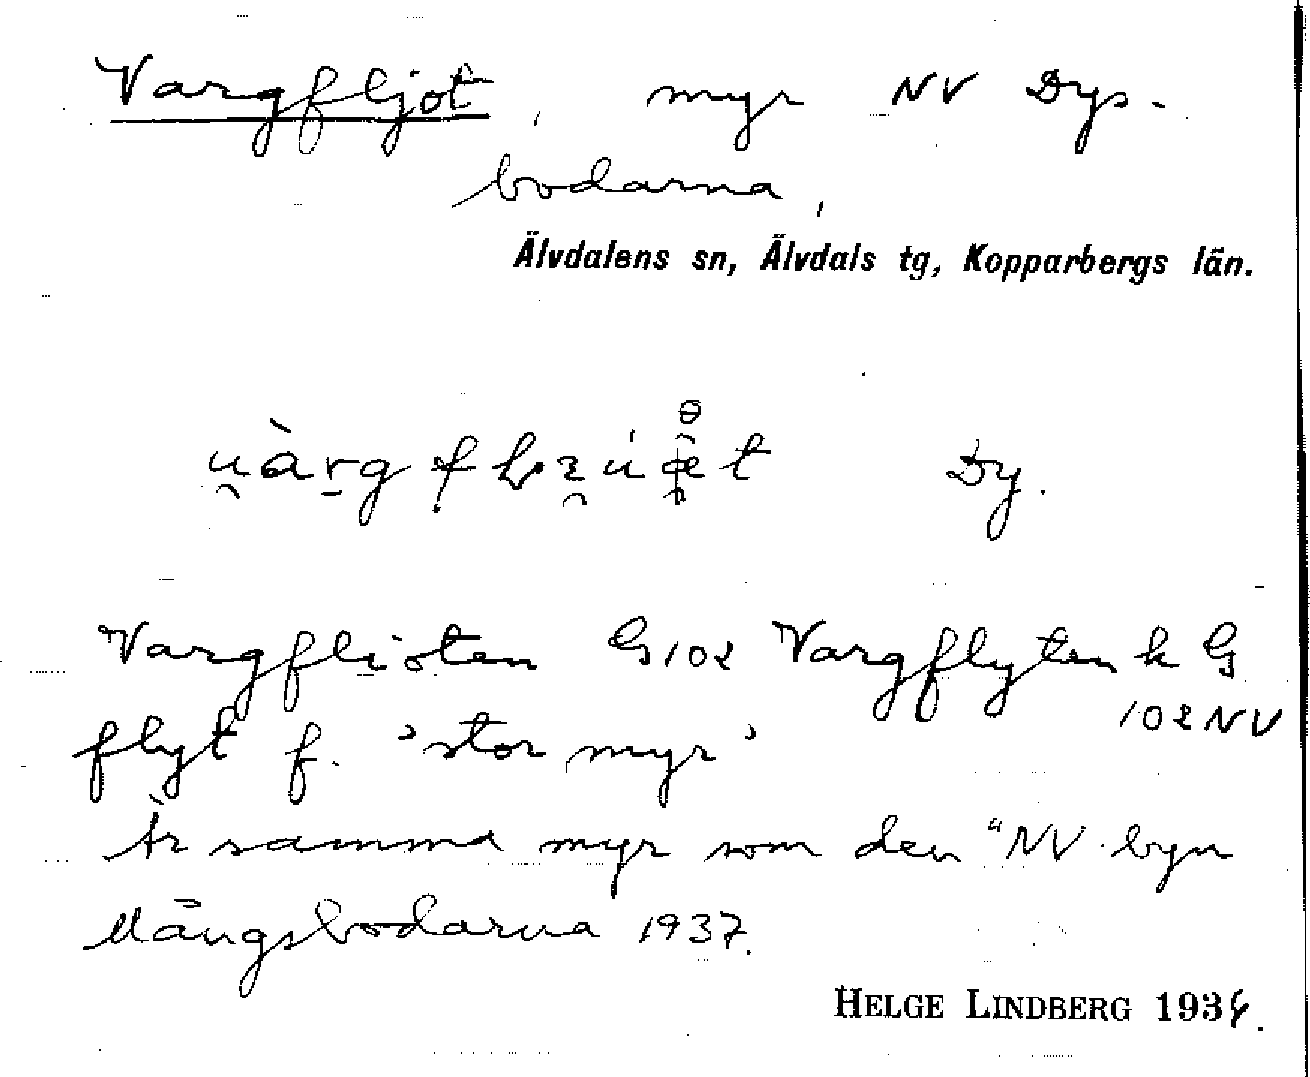 Vargfljot, myr NV Dys-
bodarna,
Älvdalens sn, Älvdals tg, Kopparbergs län.
Dy.
Vargflioten G102 Vargflyten k G
102 NV
flyt f. 'stor myr'
Är samma myr som den "NV byn
Mångsbodarna 1937.
HELGE LINDBERG 1934.